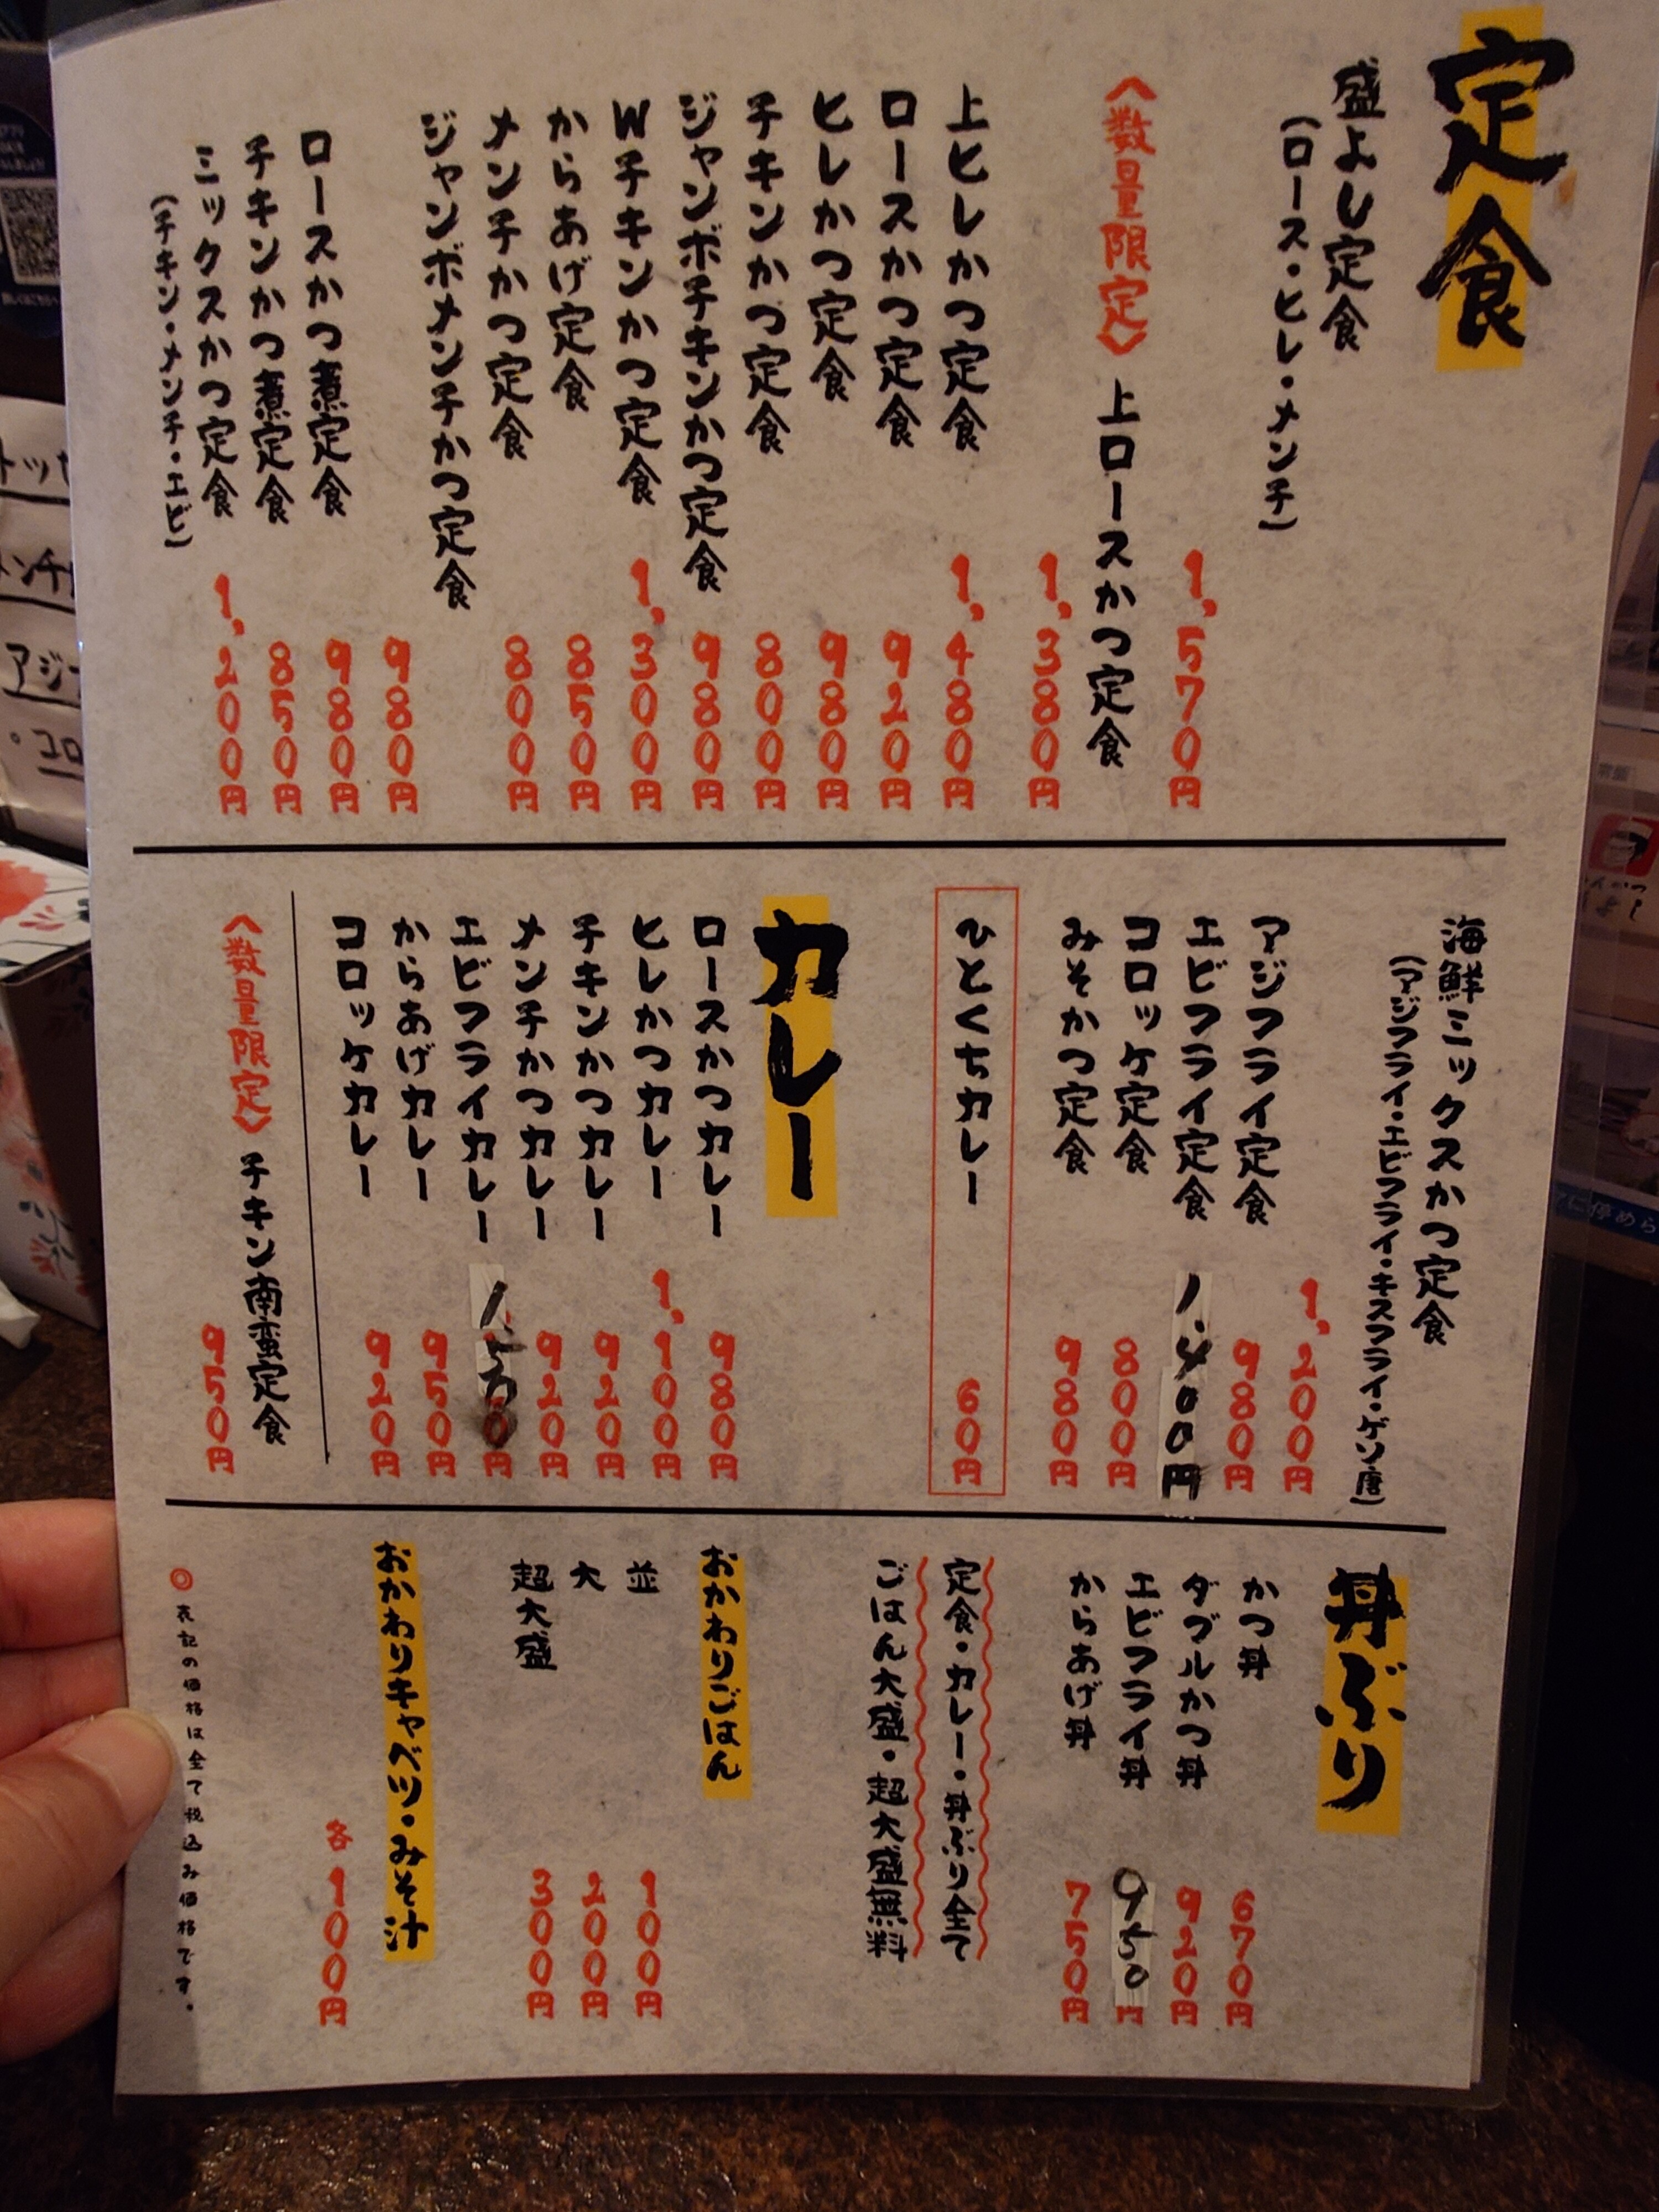 定食
盛よし定食 1,570円
（ロース・ヒレ・メンチ）
〈数量限定〉上ロースかつ定食 1,380円
上ヒレかつ定食 1,480円
ロースかつ定食 920円
ヒレかつ定食 980円
チキンかつ定食 800円
ジャンボチキンかつ定食 980円
Wチキンかつ定食 1,300円
からあげ定食 850円
メンチかつ定食 800円
ジャンボメンチかつ定食 980円
ロースかつ煮定食 980円
チキンかつ煮定食 850円
ミックスかつ定食 1,200円
（チキン・メンチ・エビ）
海鮮ミックスかつ定食 1,200円
（アジフライ・エビフライ・キスフライ・ゲソ唐）
アジフライ定食 980円
エビフライ定食 1,400円
コロッケ定食 800円
みそかつ定食 980円
ひとくちカレー 60円
カレー
ロースかつカレー 980円
ヒレかつカレー 1,100円
チキンかつカレー 920円
メンチかつカレー 920円
エビフライカレー
からあげカレー 950円
コロッケカレー 920円
〈数量限定〉チキン南蛮定食 950円
丼ぶり
かつ丼 670円
ダブルかつ丼 920円
エビフライ丼 950円
からあげ丼 750円
定食・カレー・丼ぶり全て
ごはん大盛・超大盛無料
おかわりごはん
並 100円
大 200円
超大盛 300円
おかわりキャベツ・みそ汁
各100円
◎表記の価格は全て税込み価格です。